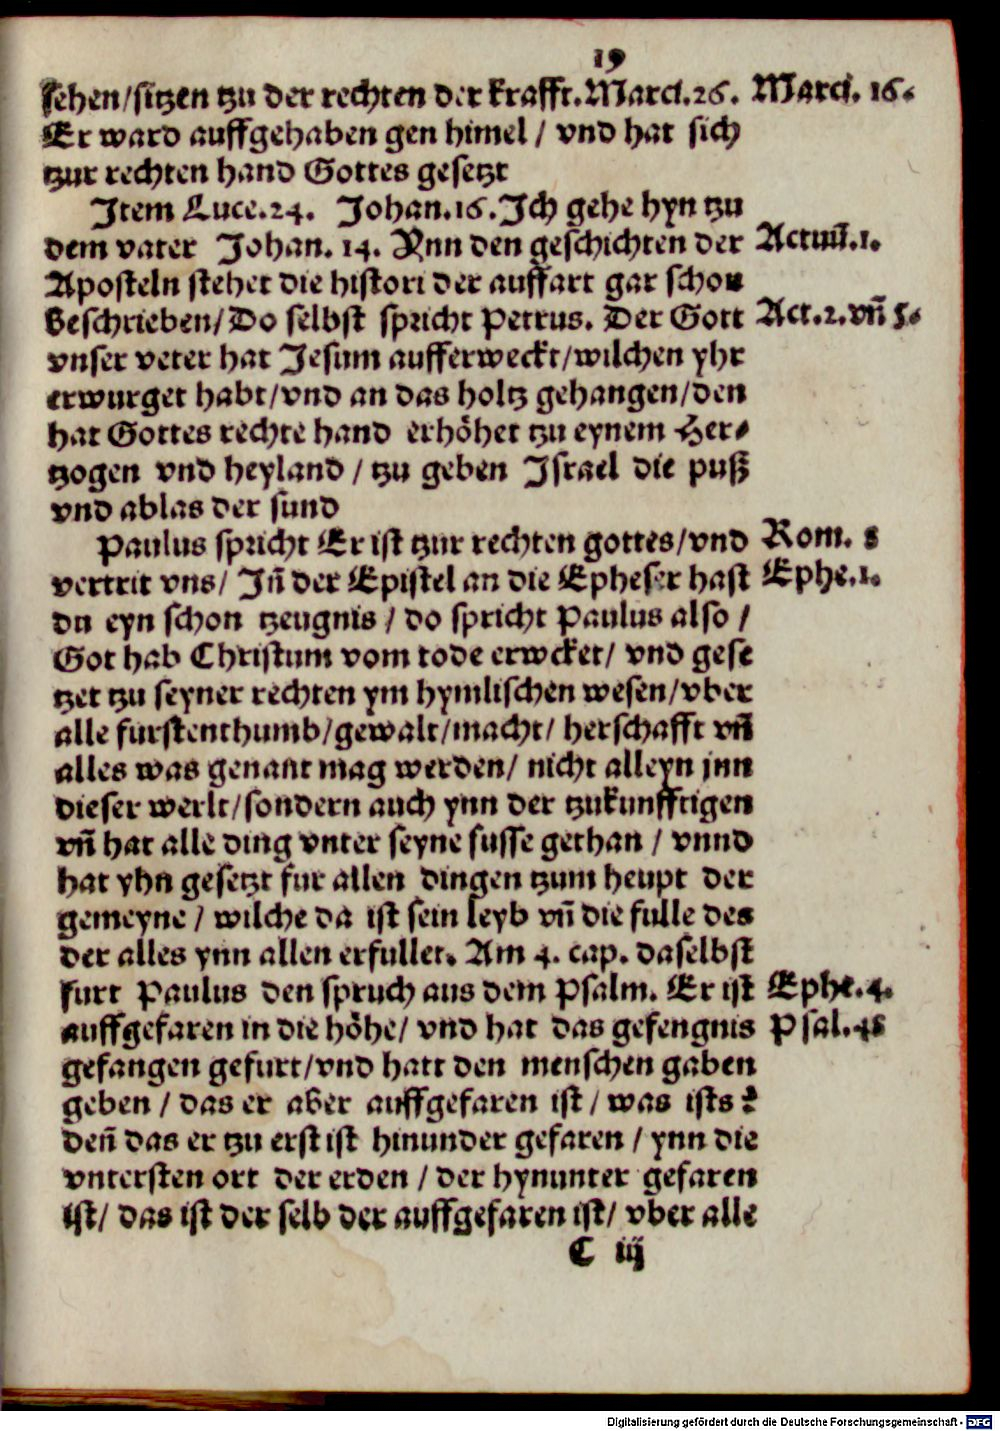 19
sehen/sitzen tzu der rechten der krafft.Marci.26. Marci. 16.
Er ward auffgehaben gen himel / vnd hat sich
tzur rechten hand Gottes gesetzt
Item Luce.24. Johan.16.Ich gehe hyn tzu
dem vater Johan. 14. Ynn den geschichten der Actuū.1.
Aposteln stehet die histori der auffart gar schon
beschrieben/Do selbst spricht Petrus. Der Gott Act.2.vñ 5.
vnser veter hat Jesum aufferweckt/wilchen yhr
erwurget habt/vnd an das holtz gehangen/den
hat Gottes rechte hand erhöhet tzu eynem Her⸗
tzogen vnd heyland / tzu geben Israel die puß
vnd ablas der sund
Paulus spricht Er ist tzur rechten gottes/vnd Rom. 8
vertrit vns/ Jñ der Epistel an die Epheser hast Ephe.1.
du eyn schon tzeugnis / do spricht Paulus also /
Got hab Christum vom tode erwcket/ vnd gese
tzet tzu seyner rechten ym hymlischen wesen/vber
alle furstenthumb/gewalt/macht/ herschafft vñ
alles was genant mag werden/ nicht alleyn jnn
dieser werlt/sondern auch ynn der tzukunfftigen
vñ hat alle ding vnter seyne fusse gethan / vnnd
hat yhn gesetzt fur allen dingen tzum heupt der
gemeyne / wilche da ist sein leyb vñ die fulle des
der alles ynn allen erfullet. Am 4. cap. daselbst
furt Paulus den spruch aus dem Psalm. Er ist Ephe.4.
auffgefaren in die höhe/ vnd hat das gefengnis Psal.48
gefangen gefurt/vnd hatt den menschen gaben
geben / das er aber auffgefaren ist / was ists ?
deñ das er tzu erst ist hinunder gefaren / ynn die
vntersten ort der erden / der hynunter gefaren
ist/ das ist der selb der auffgefaren ist/ vber alle
C iij
Digitalisierung gefördert durch die Deutsche Forschungsgemeinschaft - DFG